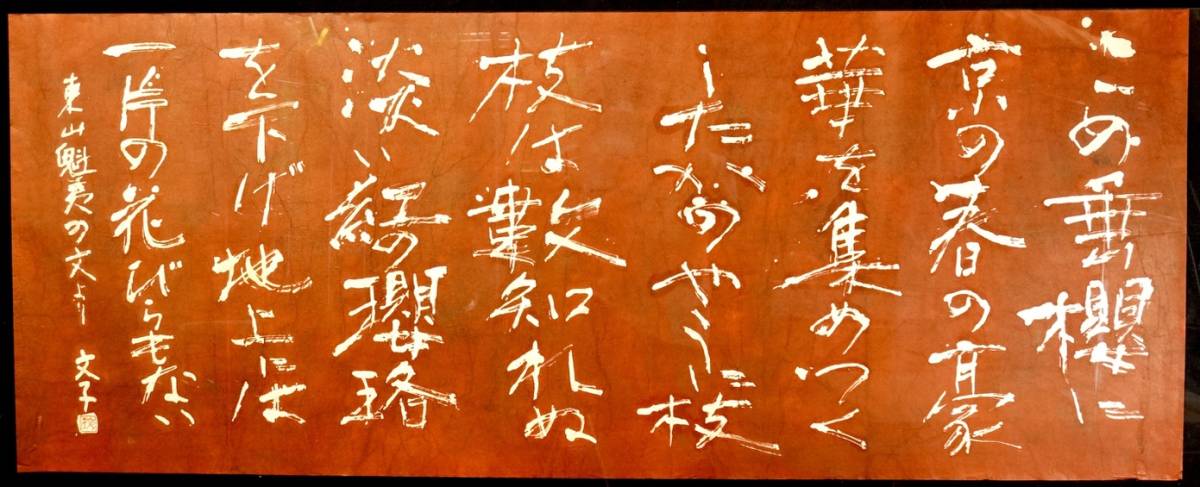 この垂櫻に
京の春の豪
華を集めつく
したかのやうに枝
枝は數知れぬ
淡い紅の瓔珞
を下げ地上には
一片の花びらもない
東山魁夷の文より 文子